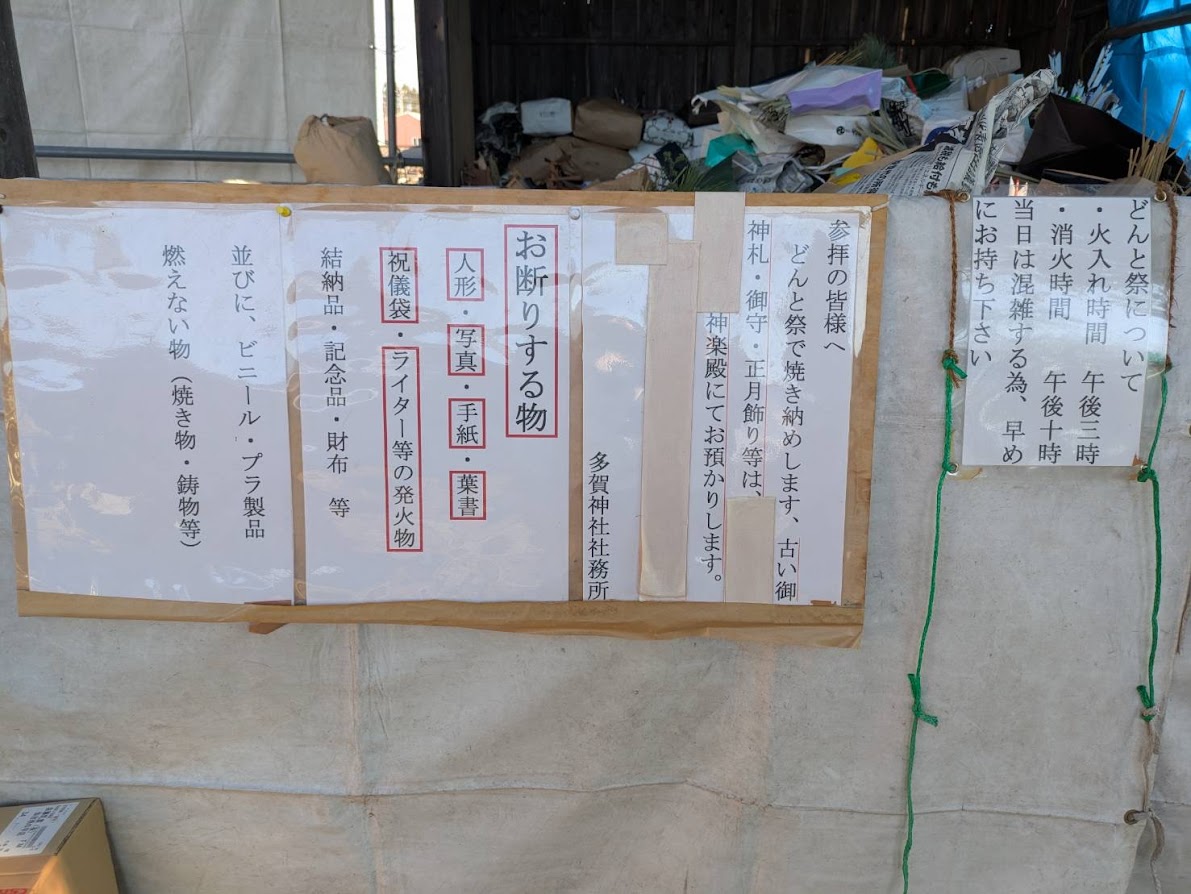 どんと祭について
・火入れ時間　午後三時
・消火時間　午後十時
当日は混雑する為、早め
にお持ち下さい
参拝の皆様へ
どんと祭で焼き納めします、古い御
神札・御守・正月飾り等は、
神楽殿にてお預かりします。
多賀神社社務所
お断りする物
人形・写真・手紙・葉書
祝儀袋・ライター等の発火物
結納品・記念品・財布　等
並びに、ビニール・プラ製品
燃えない物（焼き物・鋳物等）